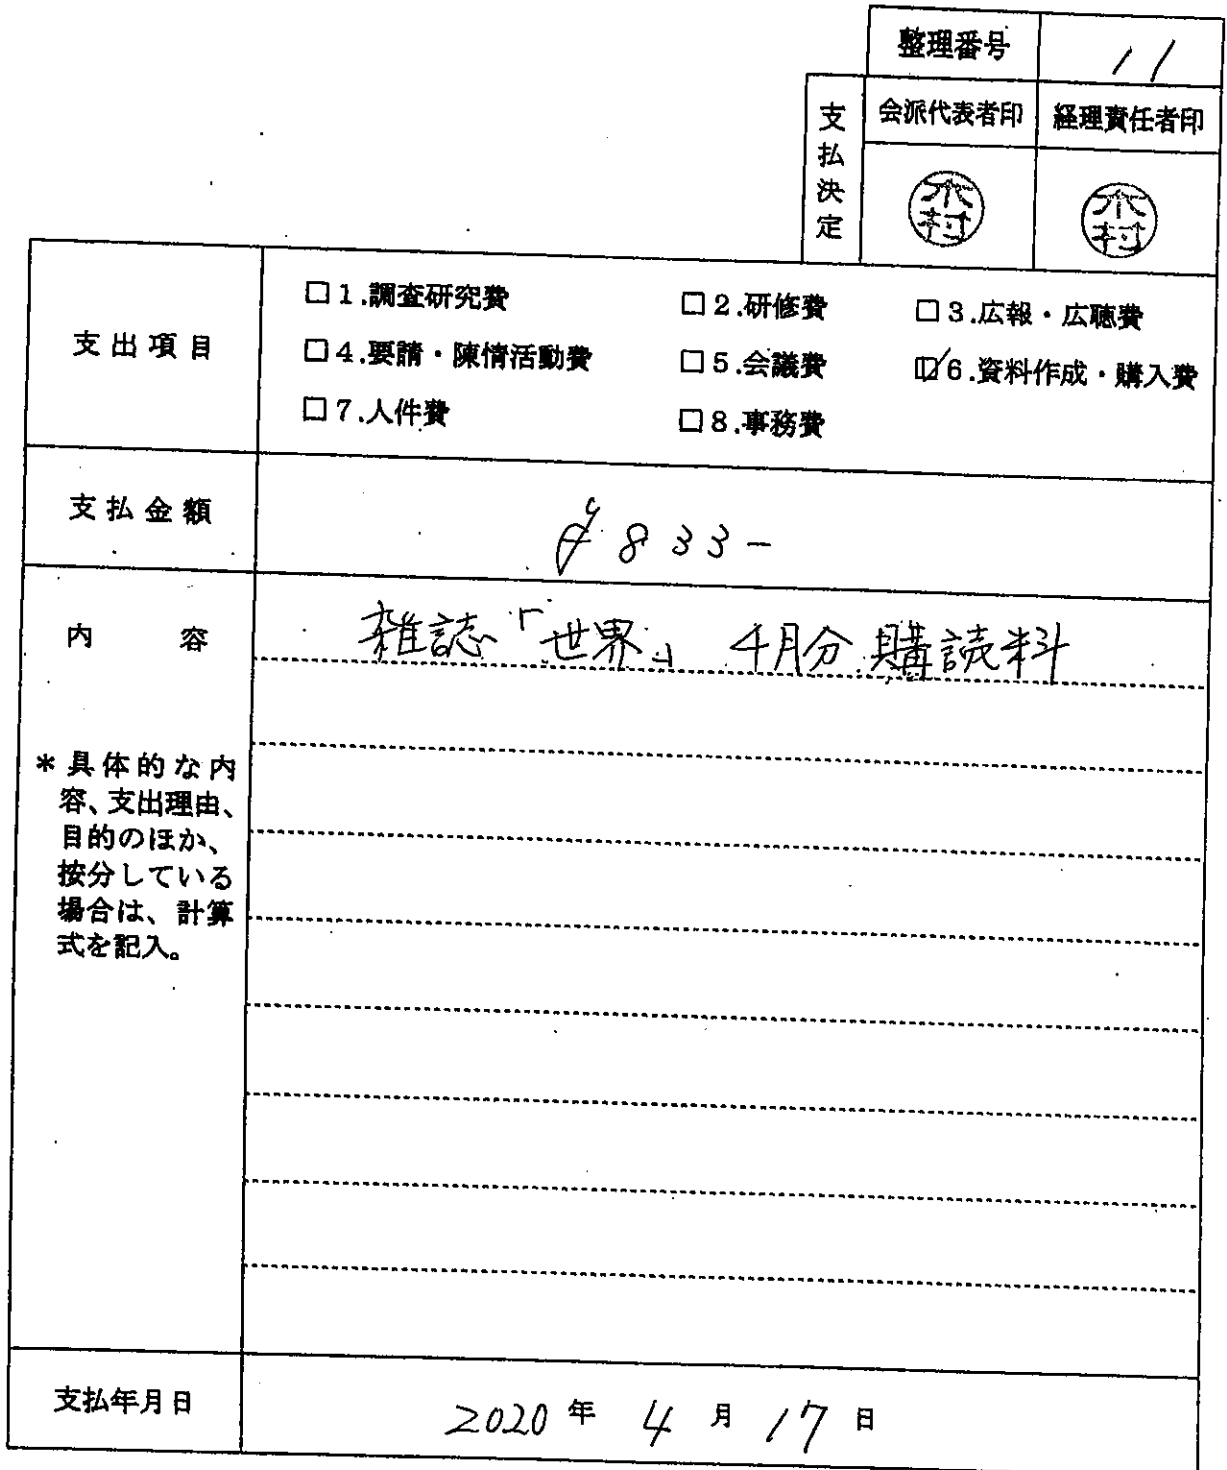 整理番号 11
支払決定 会派代表者印 経理責任者印
木村 木村
支出項目
□1.調査研究費 □2.研修費 □3.広報・広聴費
□4.要請・陳情活動費 □5.会議費 ☑6.資料作成・購入費
□7.人件費 □8.事務費
支払金額 ¥833-
内容 雑誌「世界」4月分購読料
*具体的な内
容、支出理由、
目的のほか、
按分している
場合は、計算
式を記入。
支払年月日 2020年4月17日